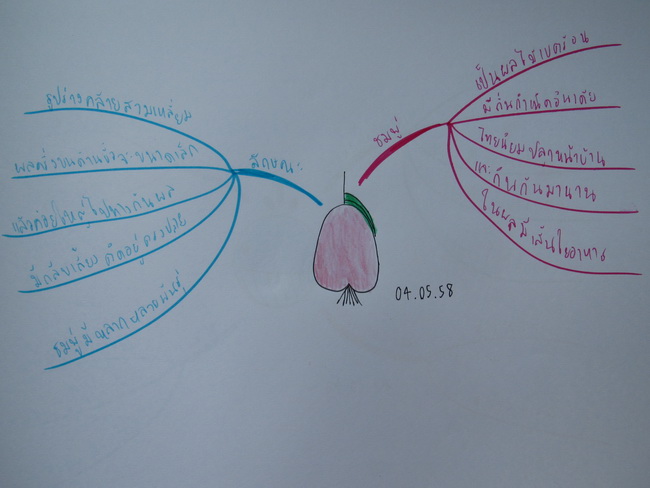 ชมพู่
เป็นผลไม้เขตร้อน
มีถิ่นกำเนิดอินเดีย
ไทยนิยมปลูกหน้าบ้าน
และกินกันมานาน
ในผลมีเส้นใยอาหาร
ลักษณะ
รูปร่างคล้ายสามเหลี่ยม
ผลบริเวณด้านขั้วจะขนาดเล็ก
แล้วค่อยขยายใหญ่ทางก้นผล
มีกลีบเลี้ยงติดอยู่ตรงปลาย
ชมพู่มีหลากหลายพันธุ์
04.05.58